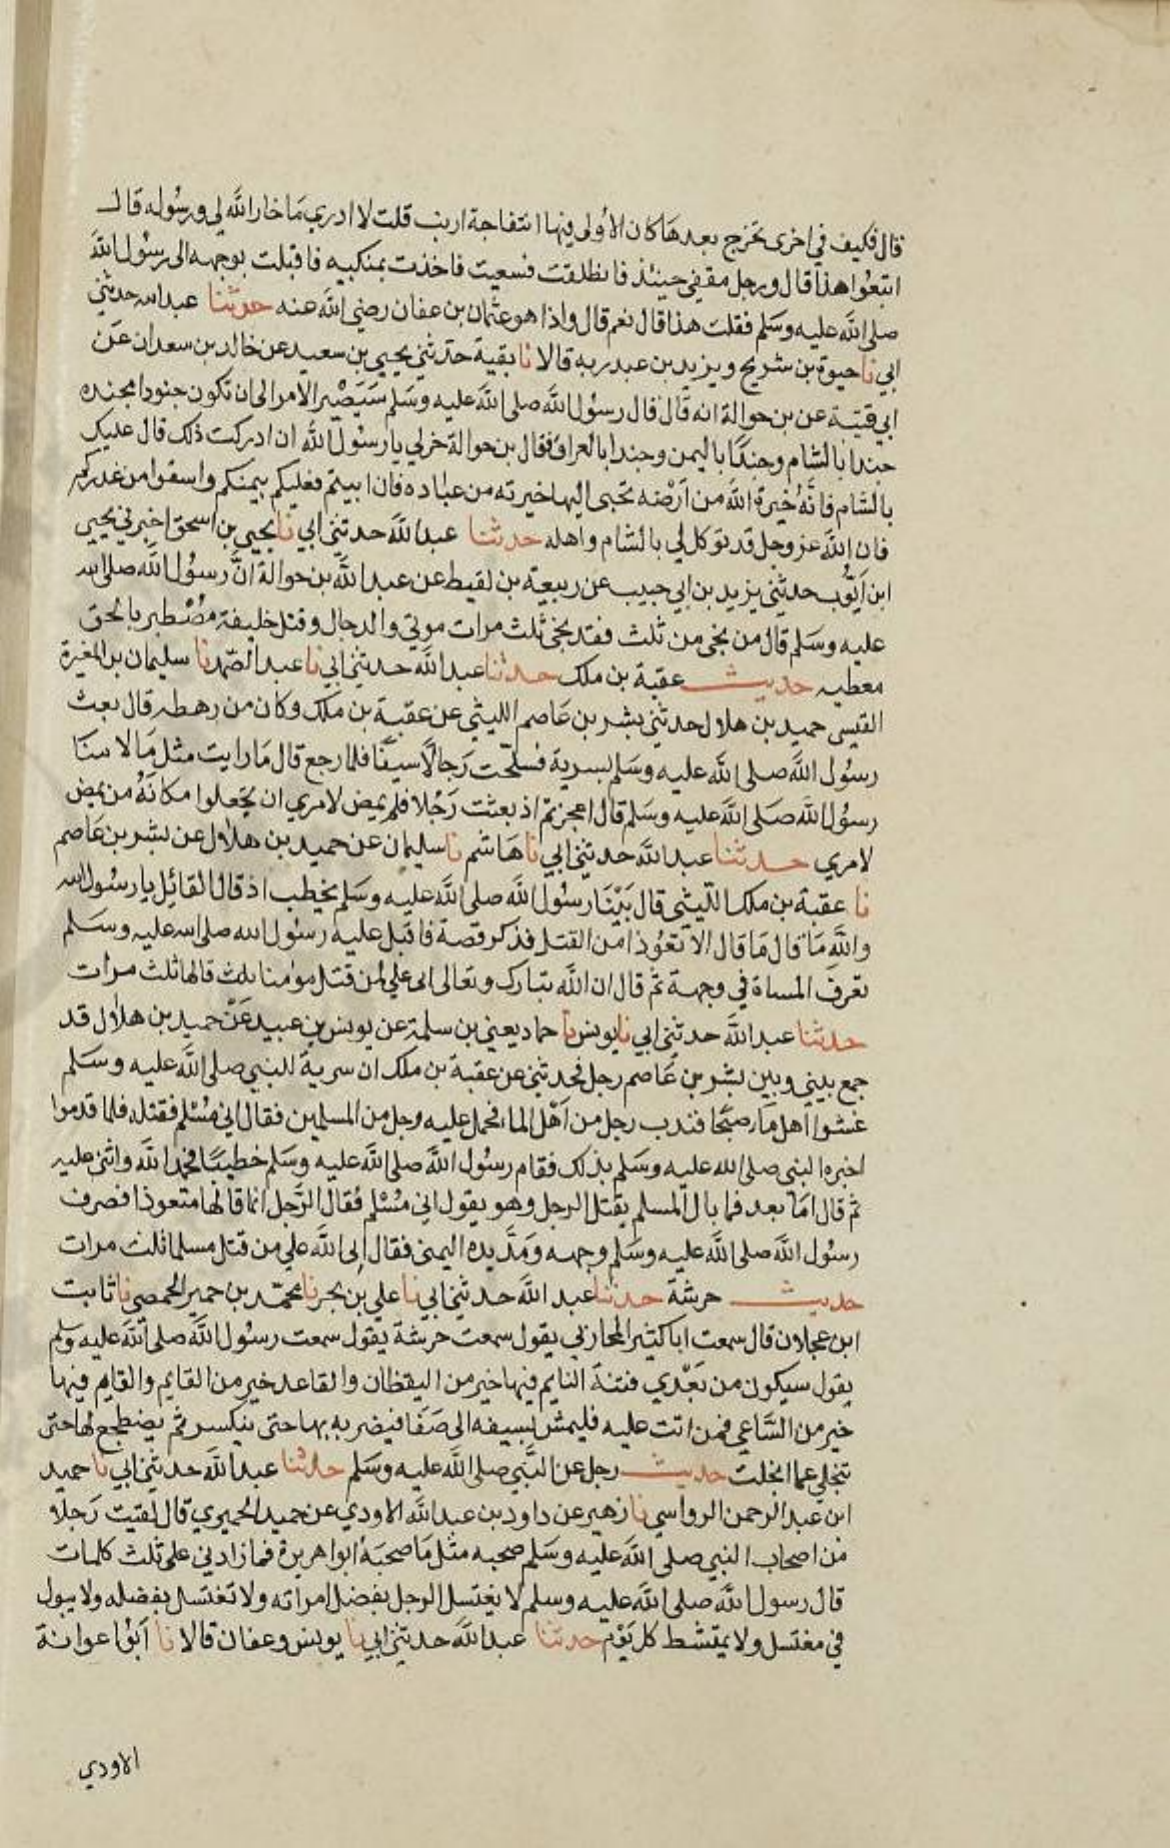 قال فكيف في اخرى تخرج بعدها كان الأولى فيها انتفاجة ارنب قلت لا ادري ما خار الله لي ورسوله قال
اتبعوا هذا قال ورجل مقفي حينئذ فانطلقت فسعيت فاخذت بمنكبيه فاقبلت بوجهه الى رسول الله
صلى الله عليه وسلم فقلت هذا قال نعم قال واذا هو عثمان بن عفان رضي الله عنه حدثنا عبد الله حدثني
ابي نا حيوة بن شريح ويزيد بن عبد ربه قالا نا بقية حدثني يحيى بن سعيد عن خالد بن سعدان عن
ابي قتيلة عن بن حوالة انه قال قال رسول الله صلى الله عليه وسلم سيصير الامر الى ان تكون جنودا مجنده
جندا بالشام وجندا باليمن وجندا بالعراق فقال بن حوالة خر لي يا رسول الله ان ادركت ذلك قال عليك
بالشام فانه خيرة الله من ارضه تجبى اليها خيرته من عباده فان ابيتم فعليكم بيمنكم واسقوا من غدركم
فان الله عز وجل قد توكل لي بالشام واهله حدثنا عبد الله حدثني ابي نا يحيى بن اسحق اخبرني يحيى
ابن ايوب حدثني يزيد بن ابي حبيب عن ربيعة بن لقيط عن عبد الله بن حوالة ان رسول الله صلى الله
عليه وسلم قال من نجى من ثلث فقد نجى ثلث مرات موتي والدجال وقتل خليفة مضطبر بالحق
معطيه حديث عقبة بن ملك حدثنا عبد الله حدثني ابي نا عبد الصمد نا سليمان بن المغيرة
القيسي حميد بن هلال حدثني بشر بن عاصم الليثي عن عقبة بن ملك وكان من رهطه قال بعث
رسول الله صلى الله عليه وسلم بسرية فسلحت رجالا سيفا فلما رجع قال ما رايت مثل ما لامنا
رسول الله صلى الله عليه وسلم قال اعجزتم اذ بعثت رجلا فلم يمض لامري ان يجعلوا مكانه من يمض
لامري حدثنا عبد الله حدثني ابي نا هاشم نا سليمان عن حميد بن هلال عن بشر بن عاصم
نا عقبة بن ملك الليثي قال بينا رسول الله صلى الله عليه وسلم يخطب اذ قال القائل يا رسول الله
والله ما قال ما قال الا تعوذا من القتل فذكر قصة فاقبل عليه رسول الله صلى الله عليه وسلم
تعرف المساة في وجهة ثم قال ان الله تبارك وتعالى ابى علي لمن قتل مومنا ثلث قالها ثلث مرات
حدثنا عبد الله حدثني ابي نا يونس نا حماد يعني بن سلمة عن يونس بن عبيد عن حميد بن هلال قد
جمع بيني وبين بشر بن عاصم رجل فحدثني عن عقبة بن ملك ان سرية للنبي صلى الله عليه وسلم
غشوا اهل ماء صبحا فندب رجل من اهل الما فحمل عليه رجل من المسلمين فقال اني مسلم فقتله فلما قدموا
اخبروا النبي صلى الله عليه وسلم بذلك فقام رسول الله صلى الله عليه وسلم خطيبا فحمد الله واثنى عليه
ثم قال اما بعد فما بال المسلم يقتل الرجل وهو يقول اني مسلم فقال الرجل انما قالها متعوذا فصرف
رسول الله صلى الله عليه وسلم وجهه ومد يده اليمنى فقال ابى الله علي من قتل مسلما ثلث مرات
حديث خرشة حدثنا عبد الله حدثني ابي نا علي بن بحر نا محمد بن حمير الحمصي نا ثابت
ابن عجلان قال سمعت ابا كثير المحاربي يقول سمعت خرشة يقول سمعت رسول الله صلى الله عليه وسلم
يقول سيكون من بعدي فتنة النايم فيها خير من اليقظان والقاعد خير من القايم والقايم فيها
خير من الساعي فمن اتت عليه فليمش بسيفه الى صفا فيضربه بها حتى ينكسر ثم يضطجع لها حتى
تنجلي عما انجلت حديث رجل عن النبي صلى الله عليه وسلم حدثنا عبد الله حدثني ابي نا حميد
ابن عبد الرحمن الرواسي نا زهير عن داود بن عبد الله الاودي عن حميد الحميري قال لقيت رجلا
من اصحاب النبي صلى الله عليه وسلم صحبه مثل ما صحبه ابوا هريرة فما زادني على ثلث كلمات
قال رسول الله صلى الله عليه وسلم لا يغتسل الرجل بفضل امراته ولا تغتسل بفضله ولا يبول
في مغتسل ولا يمتشط كل يوم حدثنا عبد الله حدثني ابي نا يونس وعفان قالا نا ابوا عوانة
الاودي